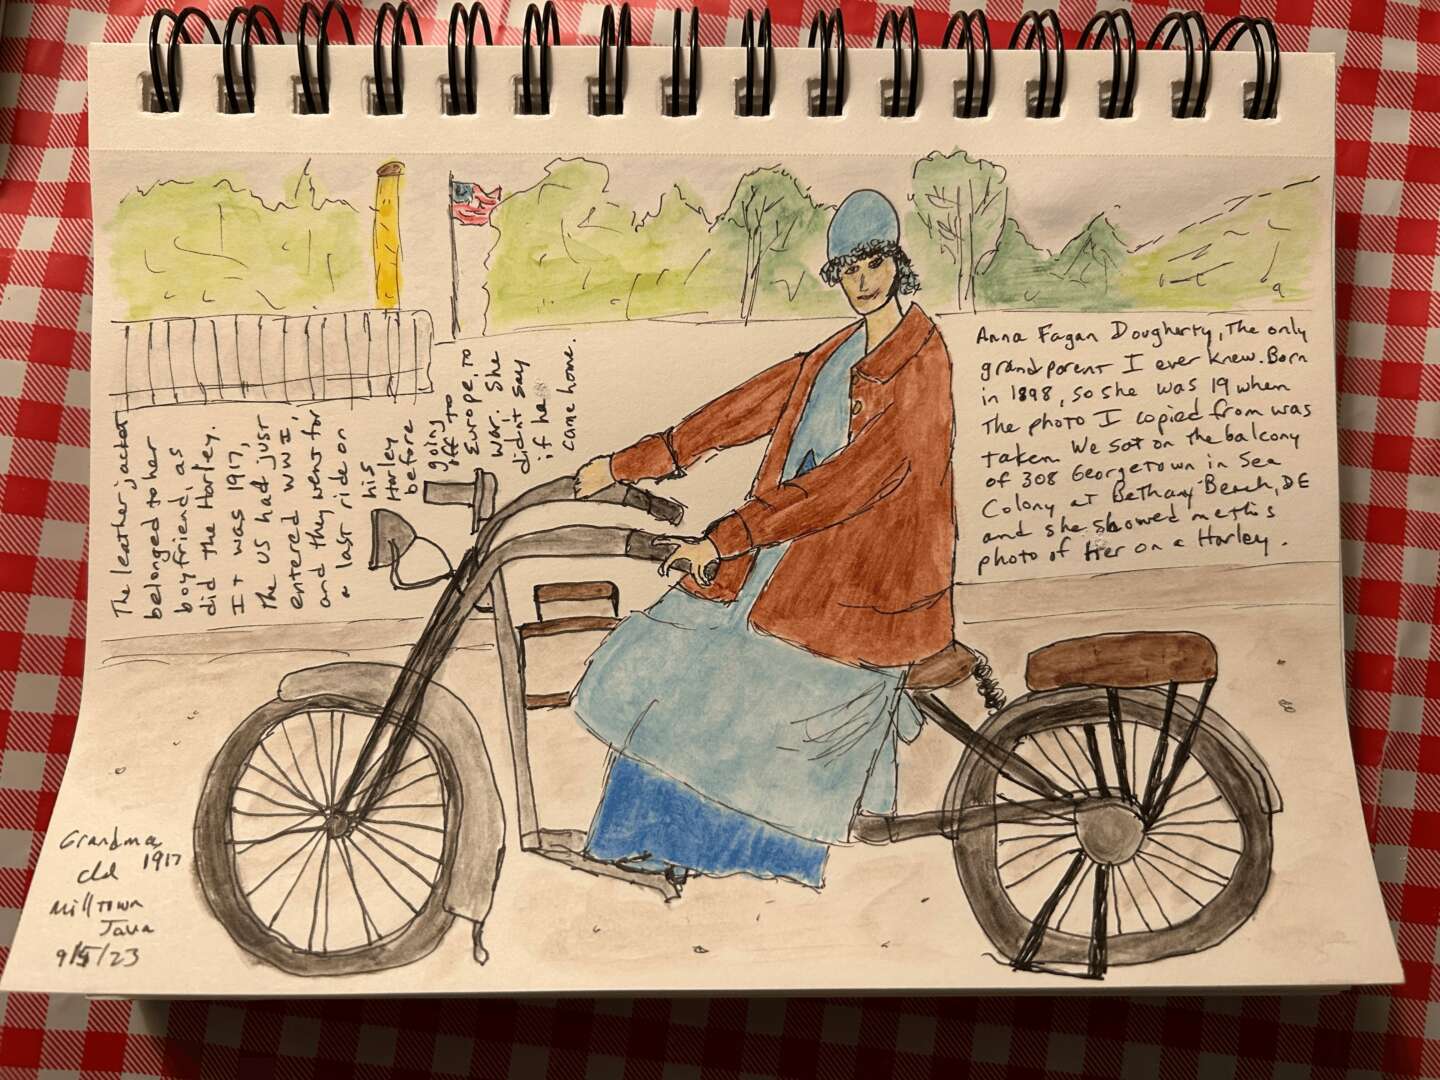 Anna Fagan Dougherty, The only
grandparent I ever knew. Born
in 1898, so she was 19 when
The photo I copied from was
taken. We sat on the balcony
of 308 Georgetown in Sea
Colony at Bethany Beach, DE
and she showed me this
photo of Her on a Harley.
The leather jacket
belonged to her
boyfriend, as
did the Harley.
It was 1917,
the US had just
entered WWI,
and they went for
a last ride on
his
Harley
before
going
off to
Europe to
war. She
didnt say
if he
came home.
Grandma,
1917
Milltown
Java
9/5/23